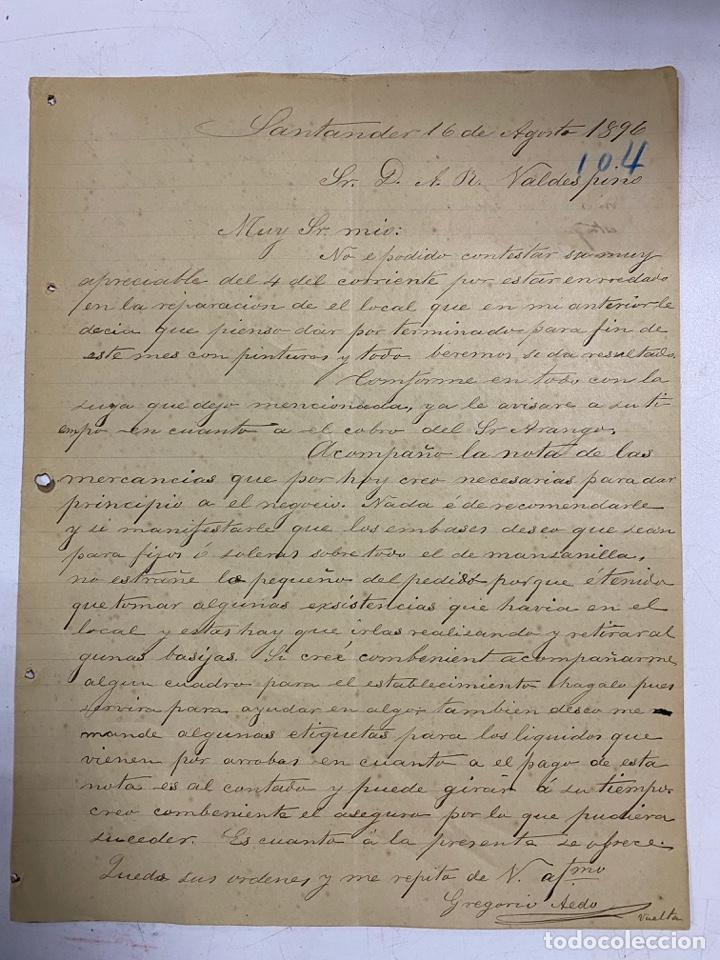 Santander 16 de Agosto 1896
104
Sr. D. A. R. Valdespino
Muy Sr. mio:
No e podido contestar su muy
apreciable del 4 del corriente por estar enrredado
en la reparacion de el local que en mi anterior le
decia que pienso dar por terminado para fin de
este mes con pinturas y todo beremos se da resultado.
Comforme en todo con la
suya que dejo mencionada, ya le avisare a su ti-
empo en cuanto a el cobro del Sr Arango.
Acompaño la nota de las
mercancias que por hoy creo necesarias para dar
principio a el negocio. Nada é de recomendarle
y si manifestarle que los embases deseo que sean
para fijos ó soleras sobre todo el de manzanilla,
no estrañe lo pequeño del pedido porque é tenido
que tomar algunas exsistencias que havia en el
local y estas hay que irlas realizando y retirar al
gunas basijas. Si creé combenient acompañarme
algun cuadro para el establecimiento hagalo pues
servira para ayudar en algo, tambien deseo me
mande algunas etiquetas para los liquidos que
vienen por arrobas en cuanto a el pago de esta
nota es al contado y puede girar á su tiempo,
creo combeniente el aseguro por lo que pudiera
suceder. Es cuanto á la presente se ofrece.
Queda sus ordenes y me repito de V. afmo
Gregorio Aedo
Vuelta
todocoleccion.net